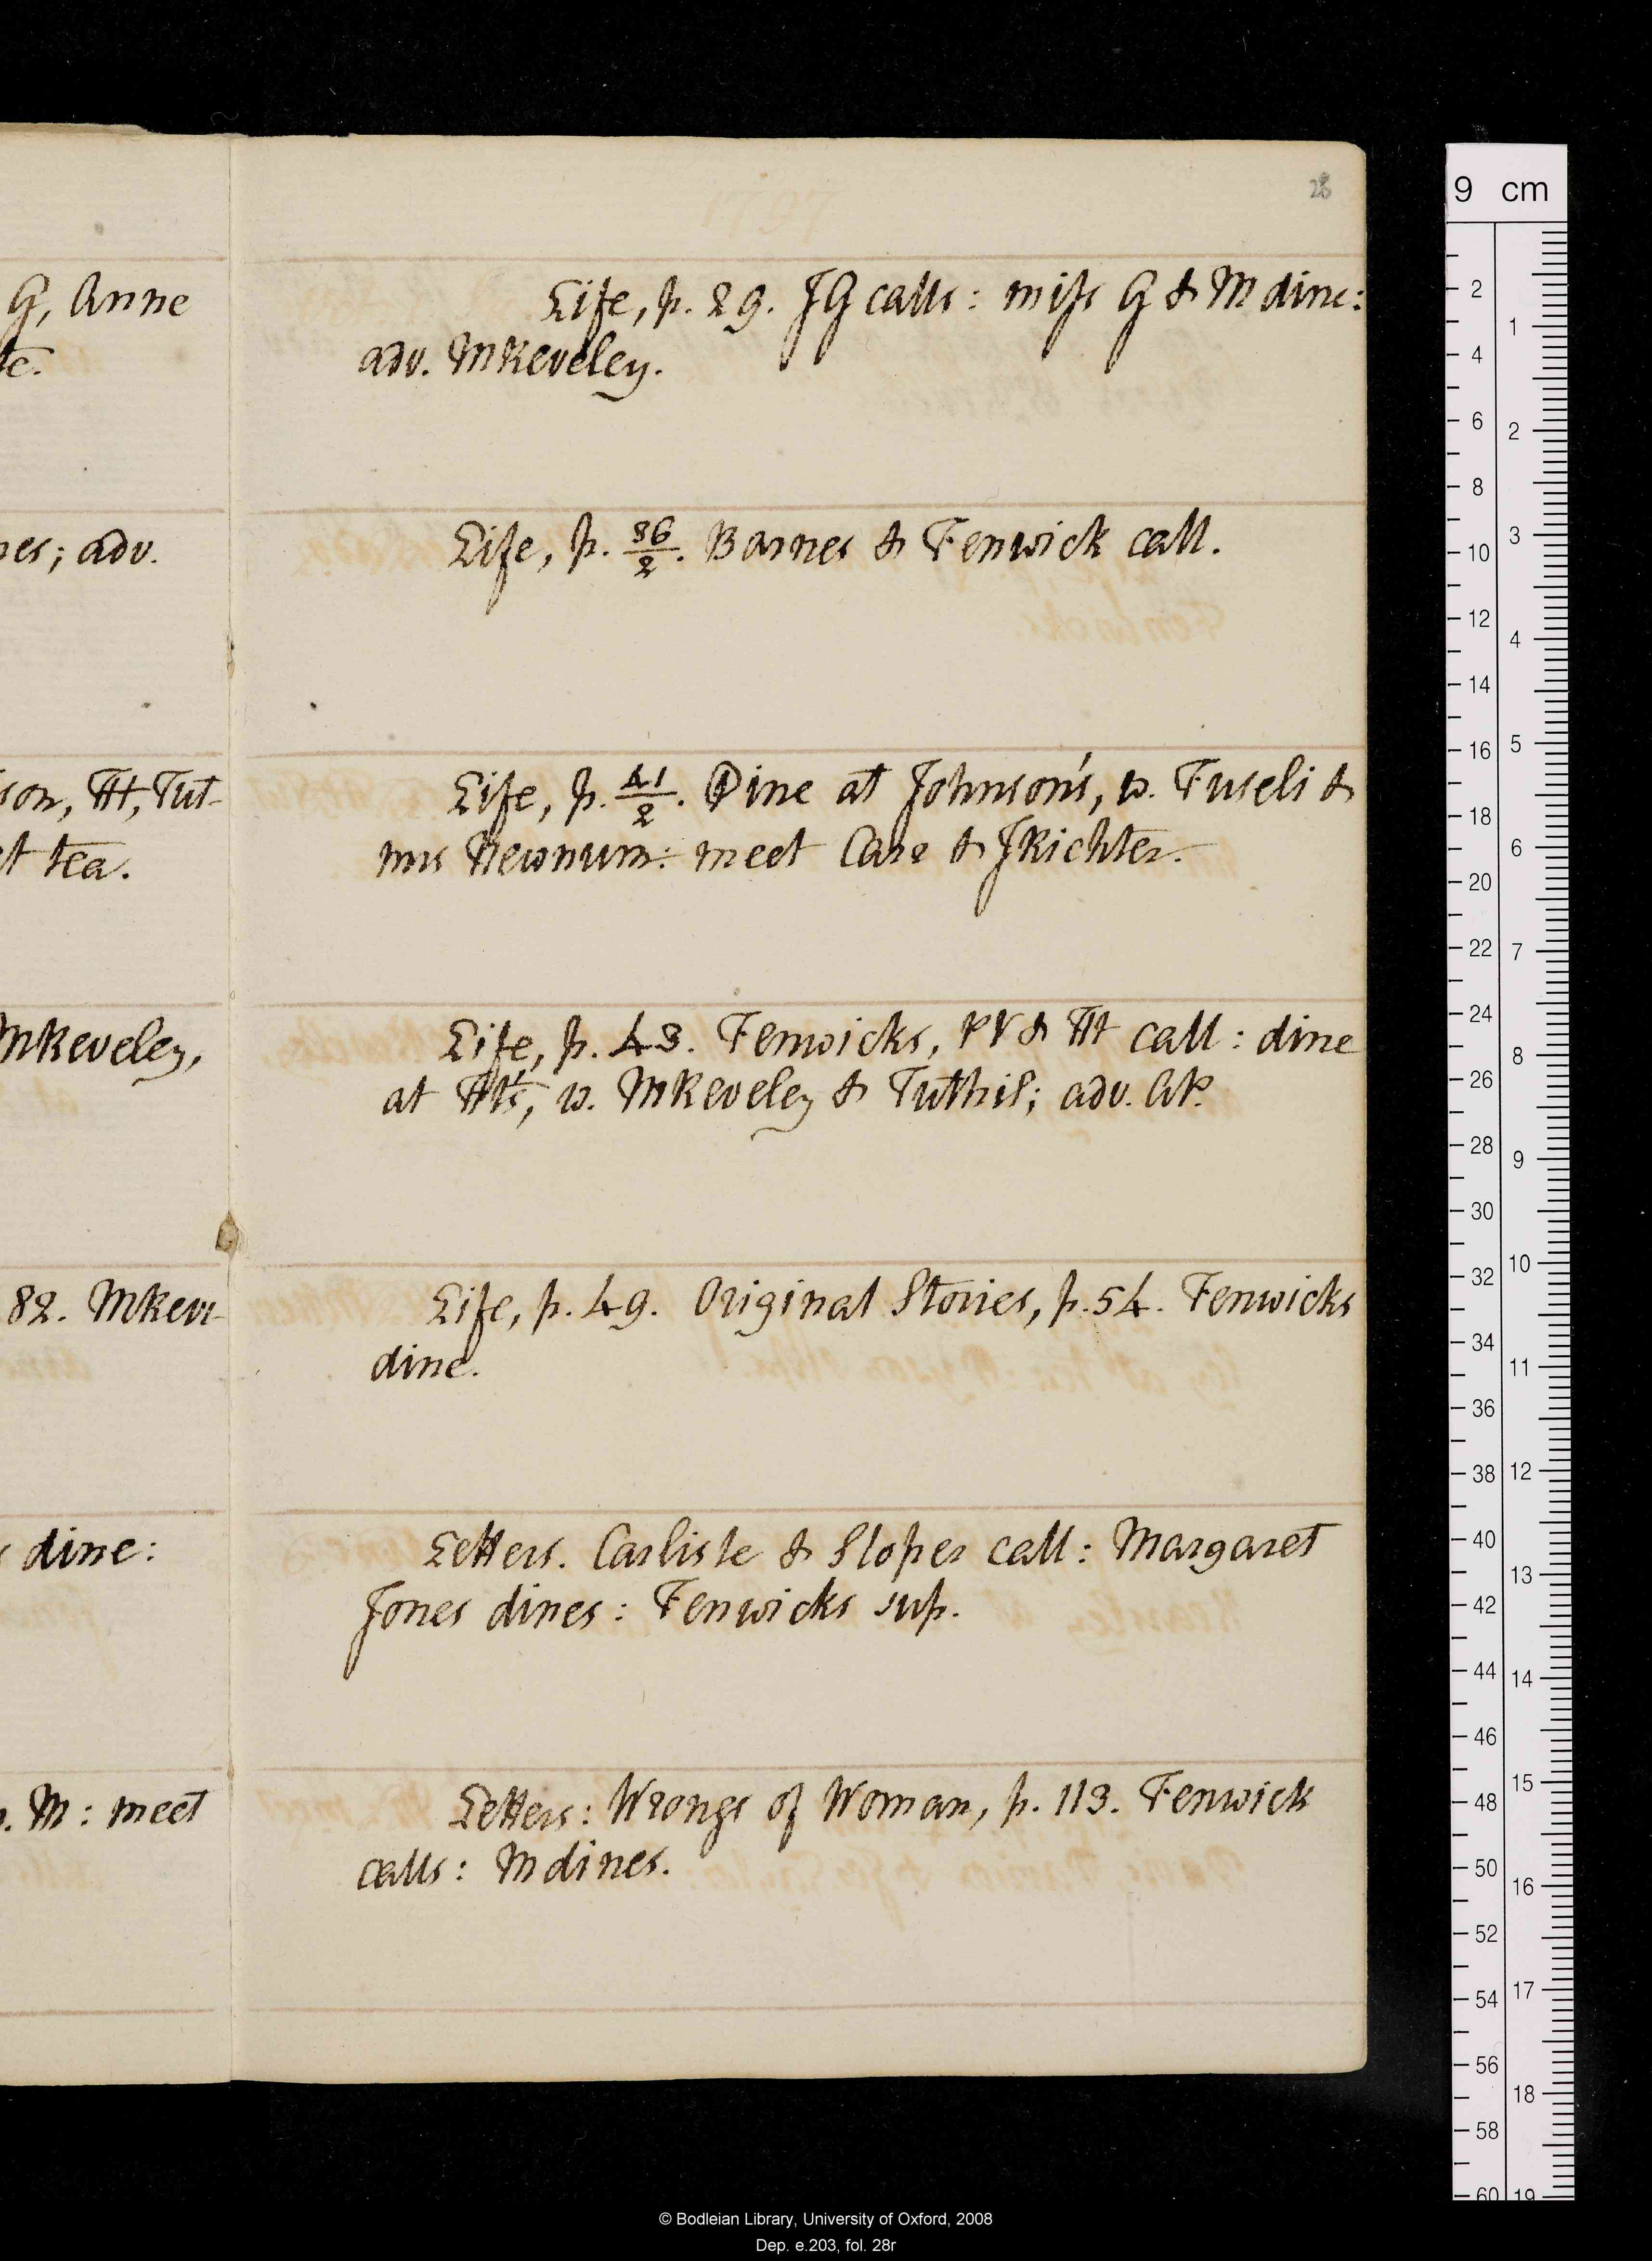 28
G, Anne
te.
Life, p. 29. JG calls: miss G & M dine:
adv. MReveley.
nes; adv.
Life, p. 36/2. Barnes & Fenwick call.
son, Ht, Tut-
et tea.
Life, p. 41/2. Dine at Johnson's, w. Fuseli &
mrs Newnum: meet Case & JRichter.
MReveley,
Life, p. 43. Fenwicks, PV & Ht call: dine
at Ht's, w. MReveley & Tuthil; adv. AP.
82. MReve-
Life, p. 49. Original Stories, p. 54. Fenwicks
dine.
s dine:
Letters. Carlisle & Sloper call: Margaret
Jones dines: Fenwicks sup.
. M: meet
Letters: Wrongs of Woman, p. 113. Fenwick
calls: M dines.
9 cm
2
4
6
8
10
12
14
16
18
20
22
24
26
28
30
32
34
36
38
40
42
44
46
48
50
52
54
56
58
60
1
2
3
4
5
6
7
8
9
10
11
12
13
14
15
16
17
18
19
© Bodleian Library, University of Oxford, 2008
Dep. e.203, fol. 28r